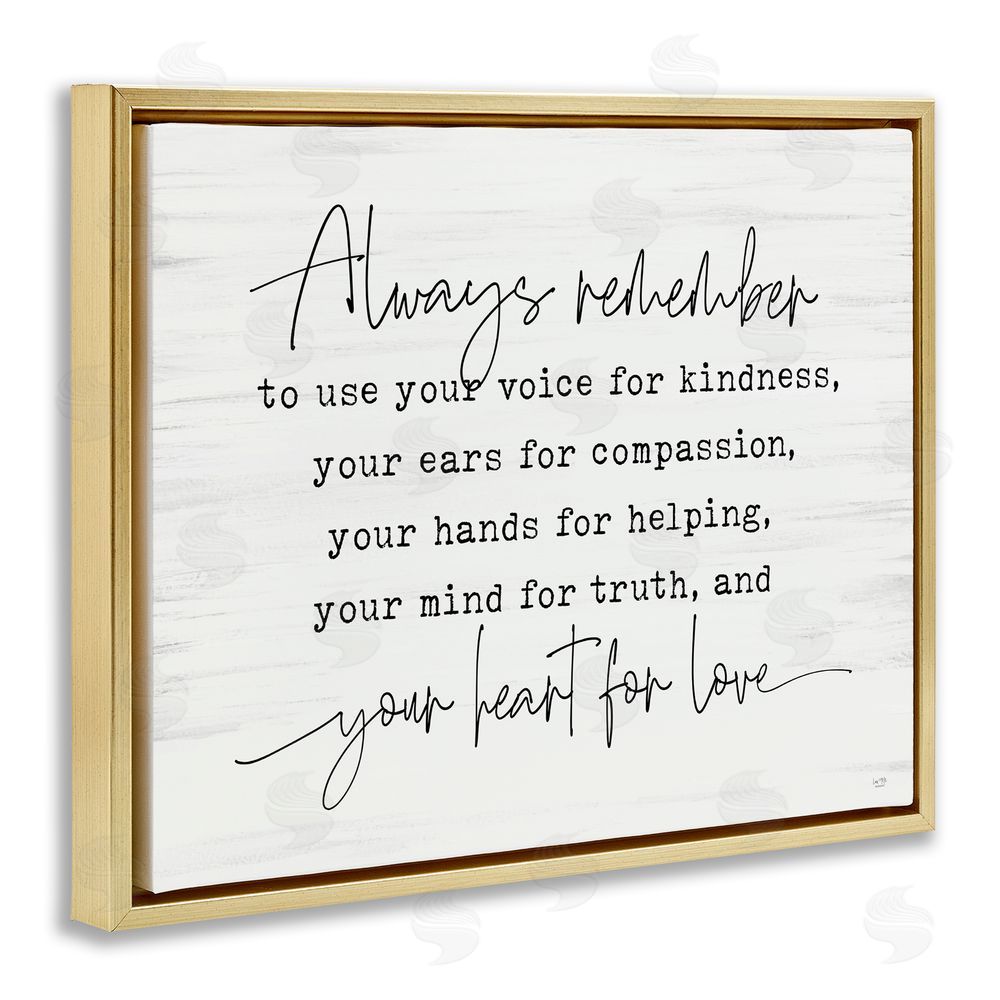 Always remember
to use your voice for kindness,
your ears for compassion,
your hands for helping,
your mind for truth, and
your heart for love